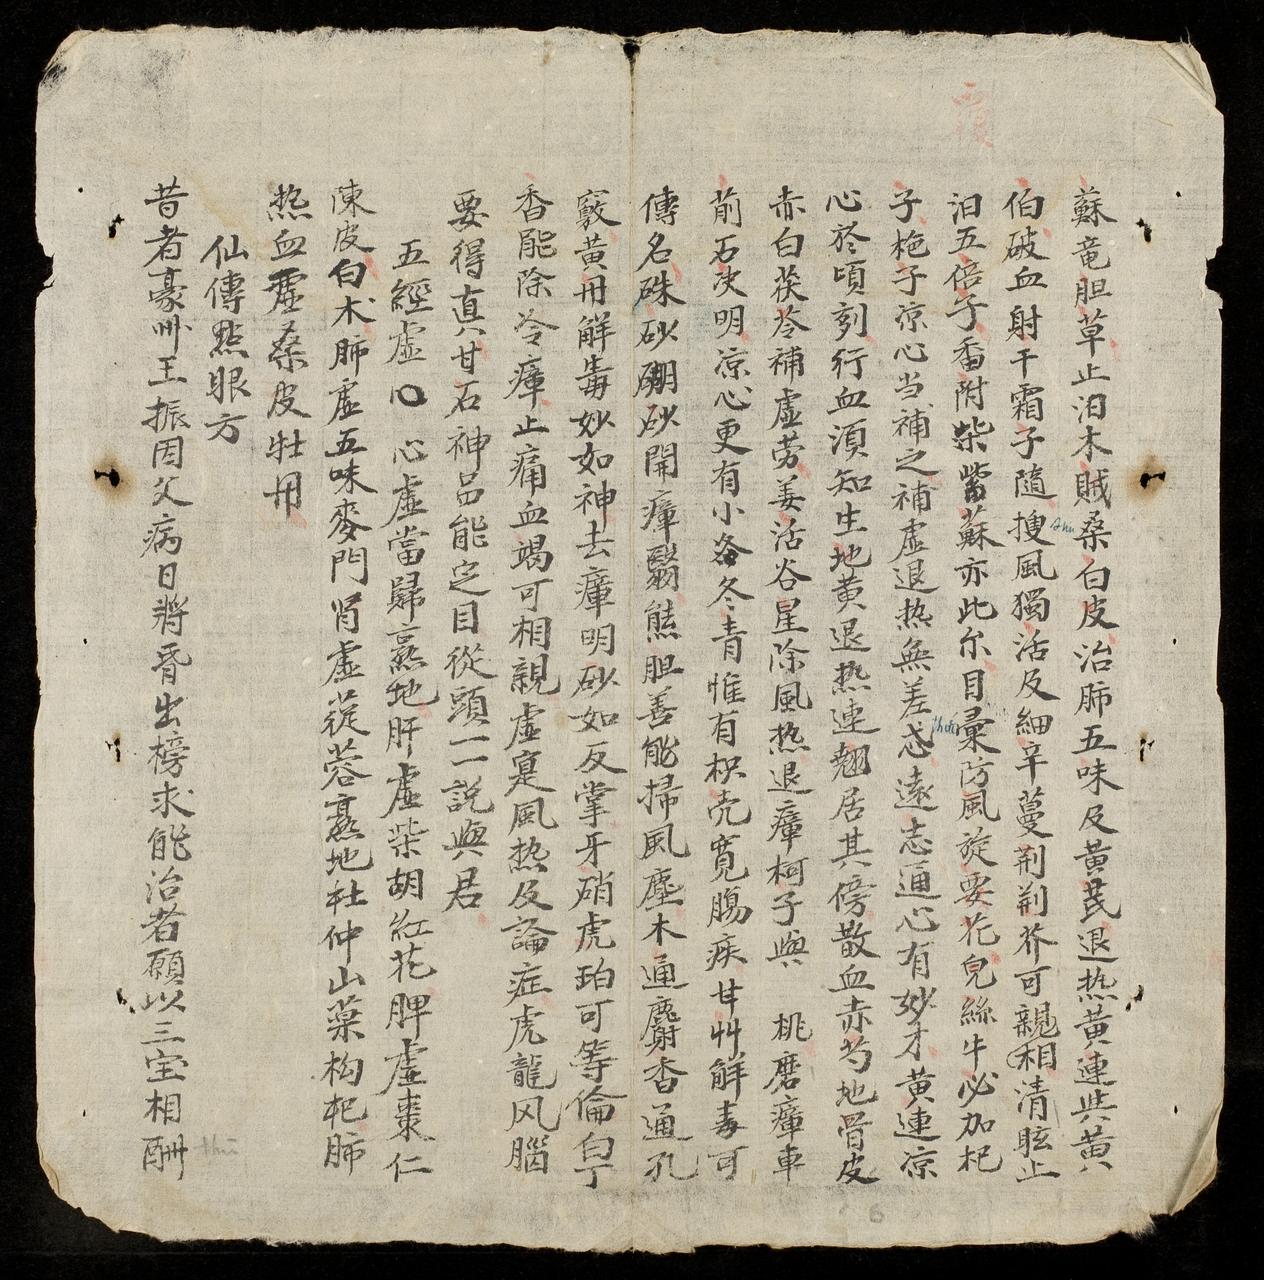 蘇竜胆草止泪木賊桑白皮治肺五味及黃芪退热黃連共黃
伯破血射干霜子隨搜風獨活及細辛蔓荆荆芥可親相清眩止
泪五倍子香附柴紫蘇亦此尔目彙防風旋要花兒絲牛必加杞
子栀子凉心当補之補虛退热無差忒遠志通心有妙才黃連凉
心於頃刻行血湏知生地黃退热連翹居其傍散血赤芍地骨皮
赤白茯苓補虛劳姜活谷星除風热退瘴柯子與 桃磨瘴車
前石决明凉心更有小卷冬青惟有枳壳寬腸疾甘艸解毒可
傳名硃砂硼砂開瘴翳熊胆善能掃風塵木通麝香通孔
竅黃丹解毒妙如神去瘴明砂如反掌牙硝虎珀可等倫白丁
香能除冷瘴止痛血竭可相親虛寔風热及論症虎龍风腦
要得真甘石神品能定目從頭一一説與君
五經虛心 心虛當歸熟地肝虛柴胡紅花脾虛棗仁
陳皮白木肺虛五味麥門肾虛蓯蓉熟地杜仲山葉构杞肺
热血虛桑皮牡丹
仙傳點眼方
昔者豪州王振因父病日將昏出榜求能治者願以三宝相酬